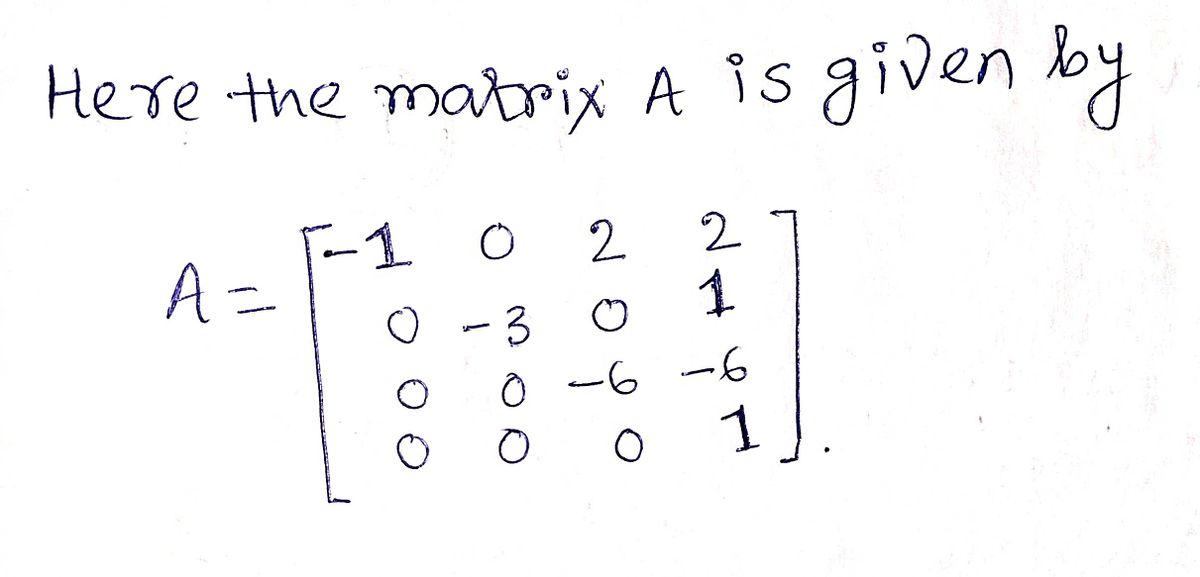 Here the matrix A is given by
A = [-1 0 2 2
0 -3 0 1
0 0 -6 -6
0 0 0 1].